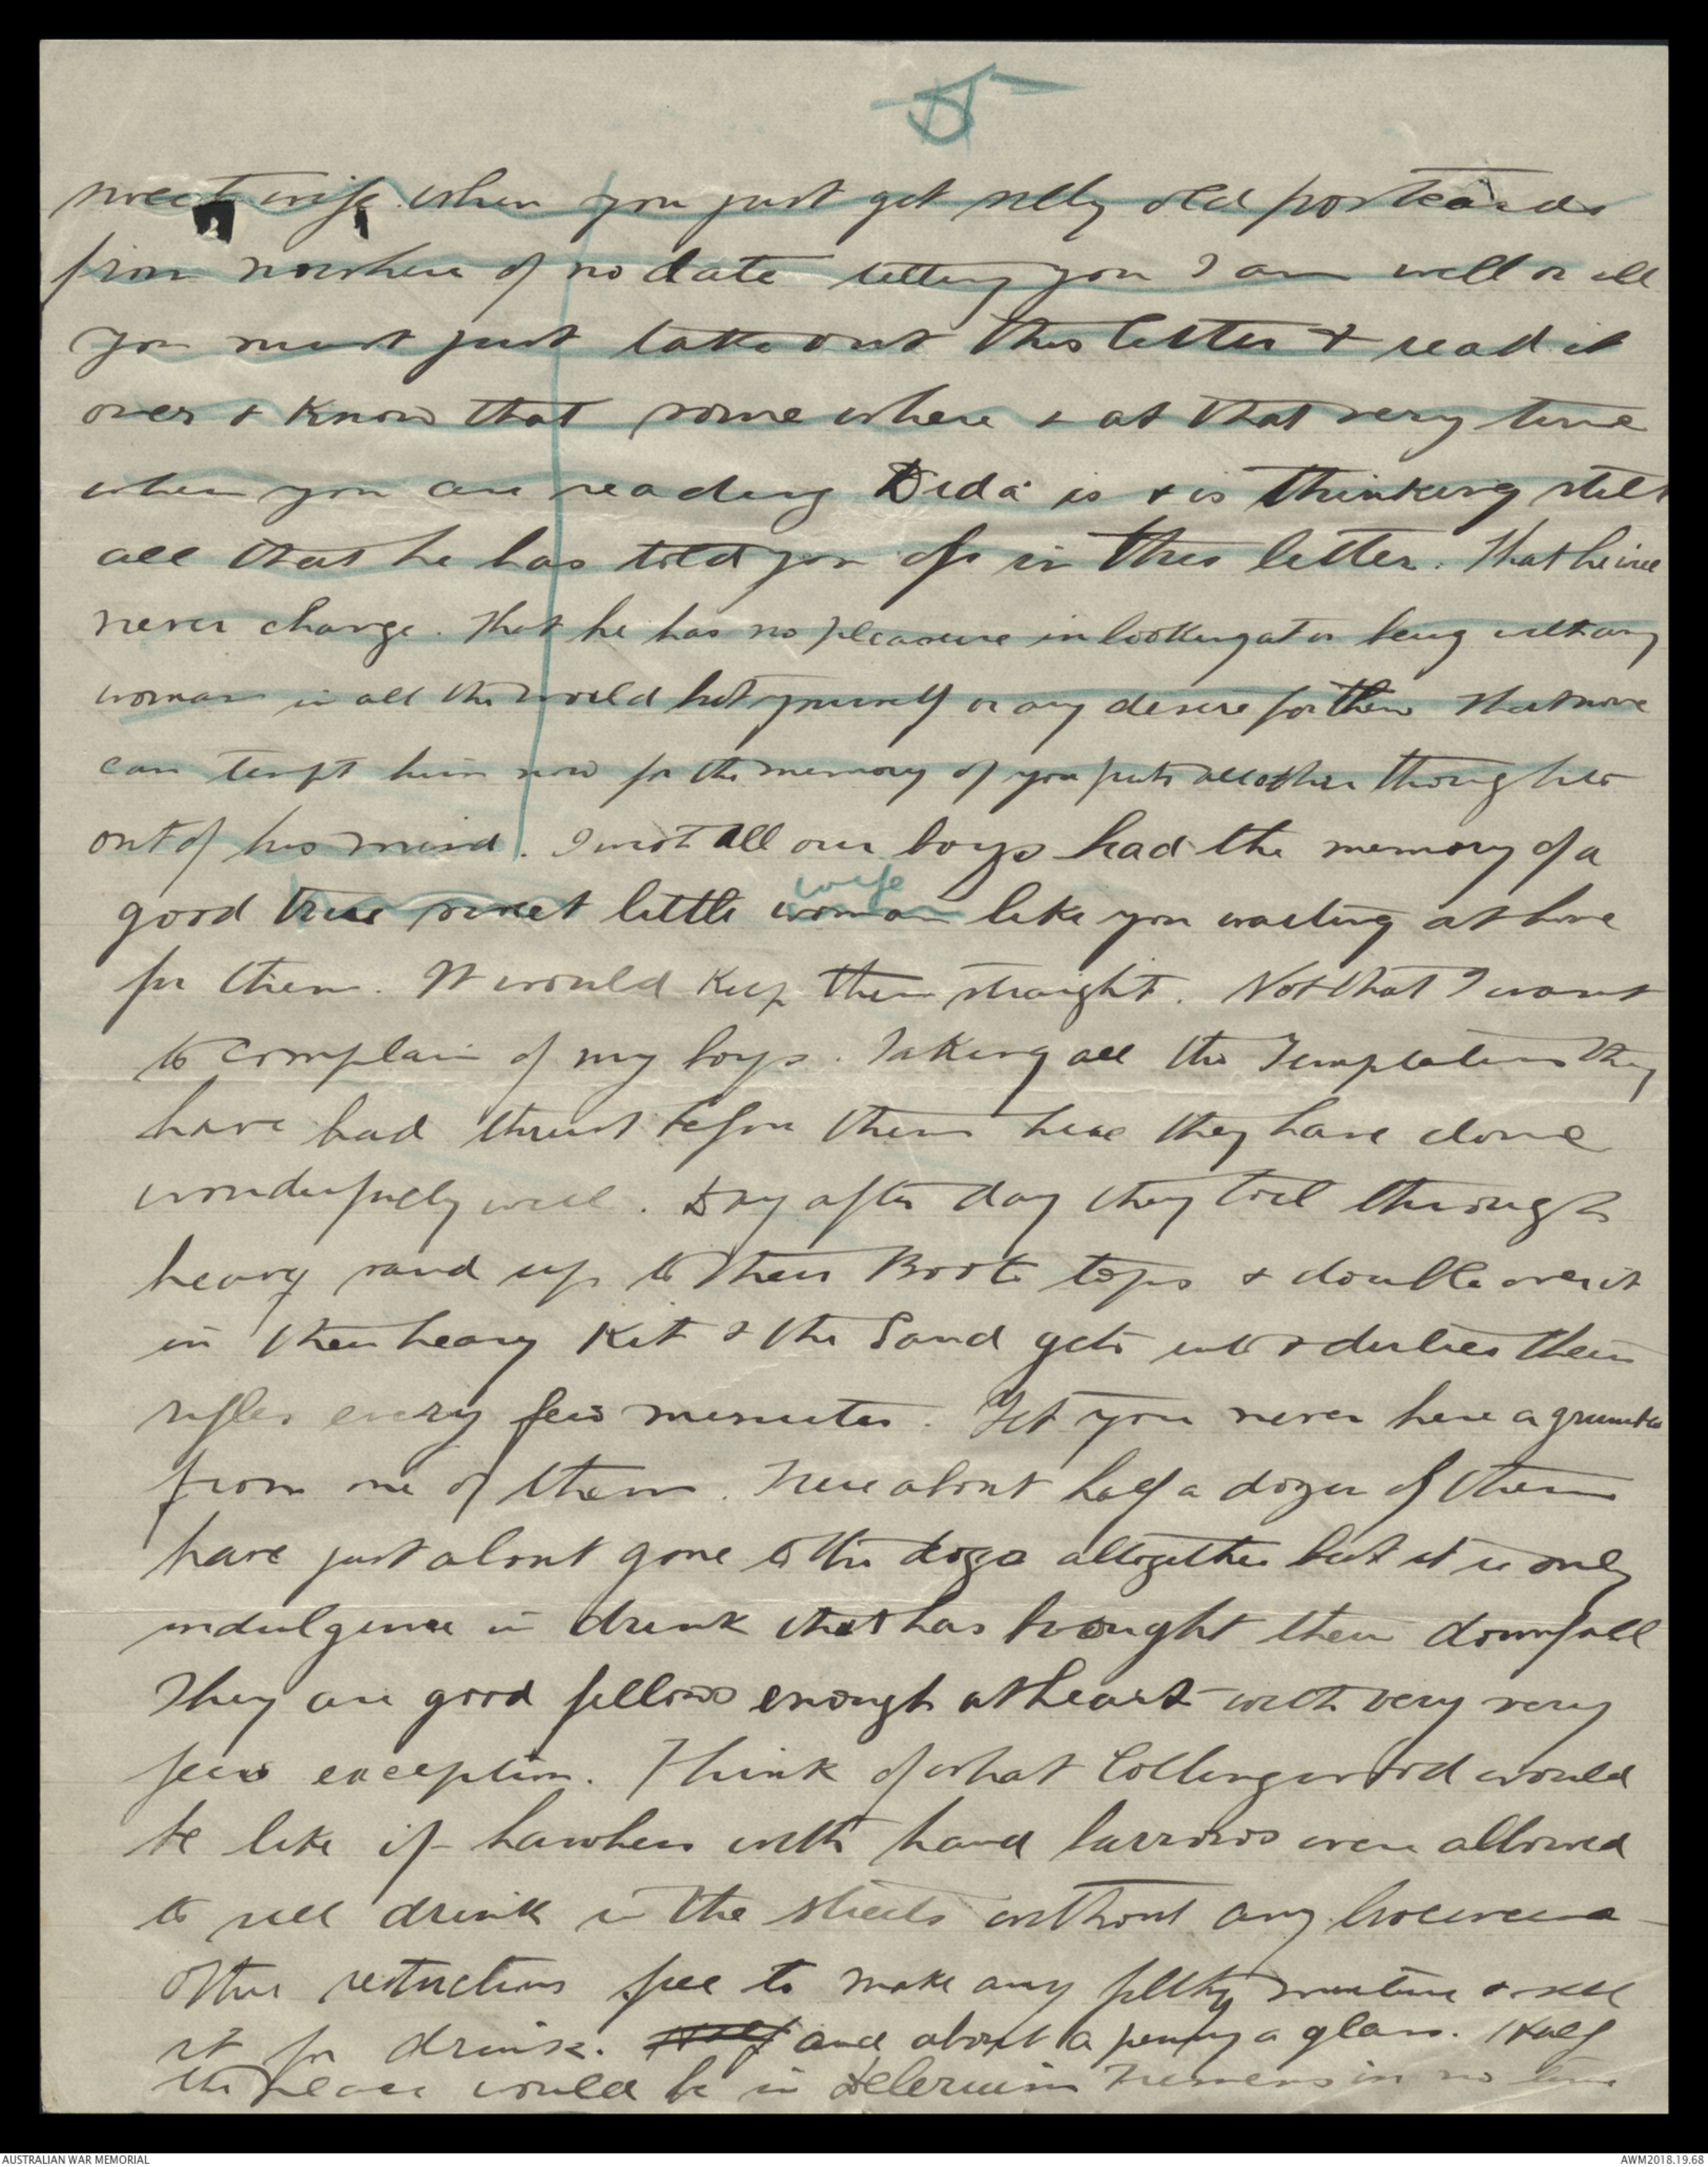 5
sweet wife when you just get silly old postcards
from nowhere of no date telling you I am well or ill
you must just take out this letter & read it
over & know that some where & at that very time
when you are reading Dida is & is thinking still
all that he has told you of in this letter. That he will
never change. That he has no pleasure in looking at or being with any
woman in all the world but yourself or any desire for them That none
can tempt him now for the memory of you puts all other thoughts
out of his mind. I wish all our boys had the memory of a
wife
good true sweet little woman like you waiting at home
for them. It would keep them straight. Not that I want
to complain of my boys. Taking all the Temptations they
have had thrust before them here they have done
wonderfully well. Day after day they toil through
heavy sand up to their Boot tops & double over it
in their heavy Kit & the Sand gets into & dirties their
rifles every few minutes. Yet you never hear a grumble
from one of them. True about half a dozen of them
have just about gone to the dogs altogether but it is only
indulgence in drink that has brought their downfall
They are good fellows enough at heart with very very
few exception. Think of what Collingwood would
be like if hawkers with hand barrows were allowed
to sell drink in the streets without any licence or
other restrictions free to make any filthy mixture & sell
it for drink. and about a penny a glass. Half
the place would be in Delerium Tremens in no time
AUSTRALIAN WAR MEMORIAL
AWM2018.19.68